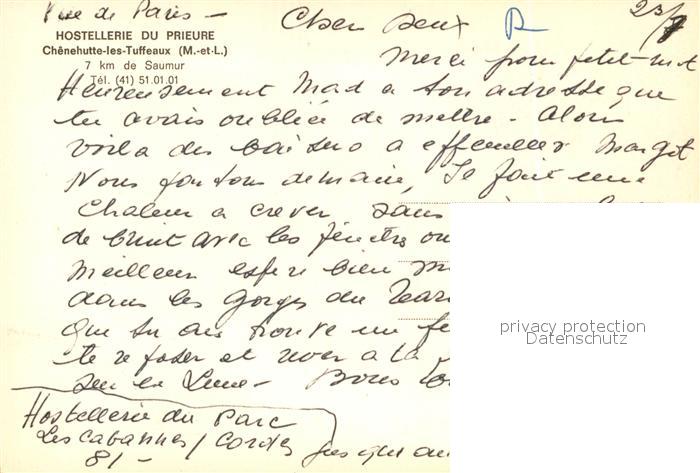 Rue de Paris -
Cher Deux
23/7
HOSTELLERIE DU PRIEURE
Chênehutte-les-Tuffeaux (M.-et-L.)
7 km de Saumur
Tél. (41) 51.01.01
Merci pour petit mot
Heureusement Mad a ton adresse que
tu avais oubliée de mettre - Alors
voila des baisers a effeuiller Margot
Nous partons demain, Il fait une
Chaleur a crever, sans
de bruit avec les fenêtres ou
Meilleur espere bien
dans les Gorges du Tarn
que tu as trouvé un
te reposer et rever a la
sur la Lune - Bons
Hostellerie du Parc
Les Cabannes / Cordes
81 -
jusqu'au
privacy protection
Datenschutz